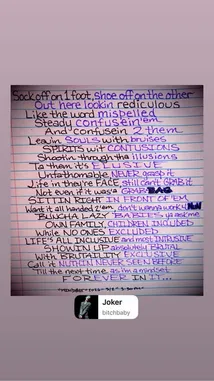 Sock off on 1 foot, shoe off on the other
Out here lookin rediculous
Like the word mispelled
Steady confusein'em
And confusein 2 them
Leavin SOULS with bruises
SPIRITS wit CONTUSIONS
Shootin through tha illusions
Ta them it's ELUSIVE
Unfathomable NEVER grasb it
Life in they're FACE, still can't GRAB it
Not even if it was a GRAB BAG
SITTIN RIGHT IN FRONT OF'EM
Want it all handed 2'em don't wanna work 4
BUNCHA LAZY BABIES
OWN FAMILY CHILDREN INCLUDED
While NO ONES EXCLUDED
LIFE'S ALL INCLUSIVE and most INTRUSIVE
SHOWIN UP absolutely BRUTAL
With BRUTALITY EXCLUSIVE
Call it NUTHIN NEVER SEEN BEFORE
Till the next time as I'm a mindset
FOREVER IN IT...
Joker
bitchbaby